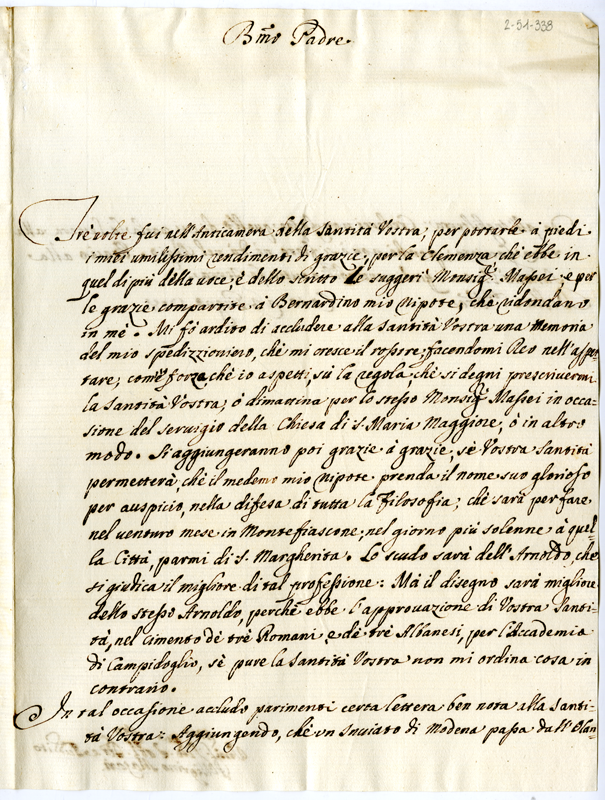 2-51-338
Bm̃o Padre.
Trè volte fui nell'Anticamera della Santità Vostra, per portarle à piedi
i miei umilissimi rendimenti di grazie, per la Clemenza, chè ebbe in
quel di più della voce, è dello scritto le suggerì Monsigr. Massei, e per
le grazie compartite à Bernardino mio Nipote, chè ridondano
in mè. Mi fò ardito di accludere alla Santità Vostra una Memoria
del mio spedizzioniero, chè mi cresce il rossore, facendomi Reo nell'aspet-
tare, com'è forza, chè io aspetti, sù la regola, chè si degni prescrivermi
la Santità Vostra, ò dimattina per lo stesso Monsigr. Massei in occa-
sione del servigio della Chiesa di S. Maria Maggiore, ò in altro
modo. Si aggiungeranno poi grazie à grazie, sè Vostra Santità
permetterà, chè il medemo mio Nipote prenda il nome suo glorioso
per auspicio, nella difesa di tutta la Filosofia, chè sarà per fare
nel venturo mese in Montefiascone, nel giorno più solenne à quel-
la Città, parmi di S. Margherita. Lo scudo sarà dell'Arnoldo, che
si giudica il migliore di tal professione: Mà il disegno sarà migliore
dello stesso Arnoldo, perchè ebbe l'approvazione di Vostra Santi-
tà, nel cimento dè trè Romani e dè trè Albanesi, per l'Accademia
di Campidoglio, sè pure la Santità Vostra non mi ordina cosa in
contrario.
In tal occasione accludo parimenti certa lettera ben nota alla Santi-
tà Vostra: Aggiungendo, chè un Inviato di Modena passa dall'Olan-